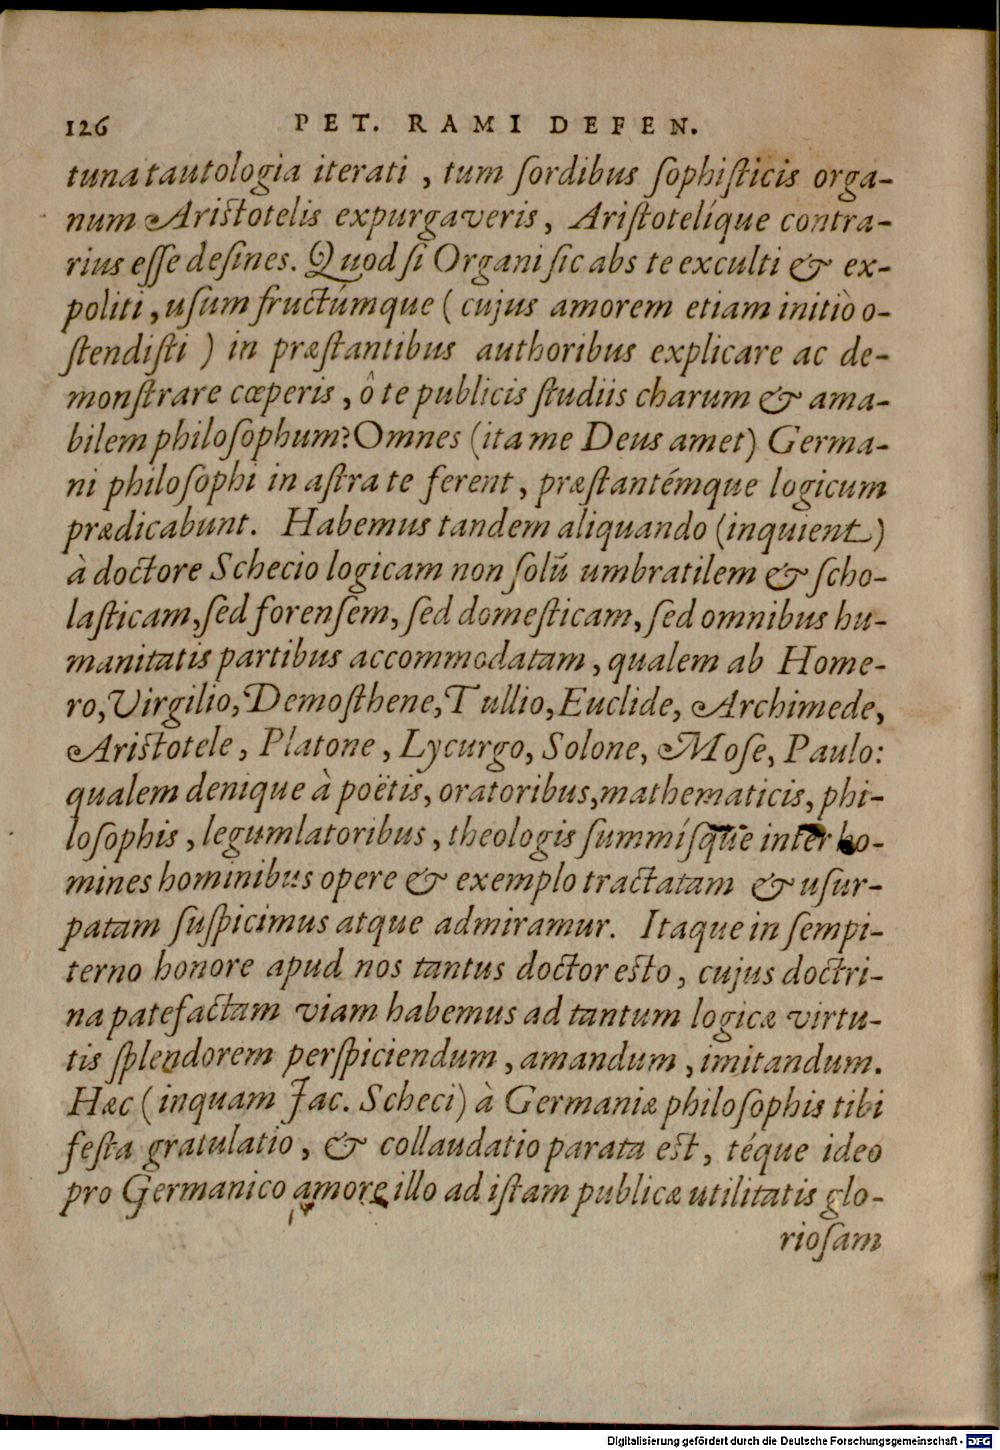 126 PET. RAMI DEFEN.
tuna tautologia iterati , tum ſordibus ſophiſticis orga-
num Ariſtotelis expurgaveris, Ariſtotelíque contra-
rius eſſe deſines. Quod ſi Organi ſic abs te exculti & ex-
politi , uſum fructúmque ( cujus amorem etiam initiò o-
ſtendiſti ) in præſtantibus authoribus explicare ac de-
monſtrare cœperis , ô te publicis ſtudiis charum & ama-
bilem philoſophum? Omnes (ita me Deus amet) Germa-
ni philoſophi in aſtra te ferent , præſtantémque logicum
prædicabunt. Habemus tandem aliquando (inquient)
à doctore Schecio logicam non ſolũ umbratilem & ſcho-
laſticam, ſed forenſem, ſed domeſticam, ſed omnibus hu-
manitatis partibus accommodatam , qualem ab Home-
ro, Virgilio, Demoſthene, Tullio, Euclide, Archimede,
Ariſtotele , Platone , Lycurgo, Solone, Moſe, Paulo:
qualem denique à poëtis, oratoribus, mathematicis, phi-
loſophis , legumlatoribus , theologis ſummíſque inter ho-
mines hominibus opere & exemplo tractatam & uſur-
patam ſuſpicimus atque admiramur. Itaque in ſempi-
terno honore apud nos tantus doctor eſto , cujus doctri-
na patefactam viam habemus ad tantum logicæ virtu-
tis ſplendorem perſpiciendum , amandum , imitandum.
Hæc (inquam Jac. Scheci) à Germaniæ philoſophis tibi
feſta gratulatio , & collaudatio parata eſt, téque ideo
pro Germanico amore illo ad iſtam publicæ utilitatis glo-
rioſam
Digitalisierung gefördert durch die Deutsche Forschungsgemeinschaft - DFG